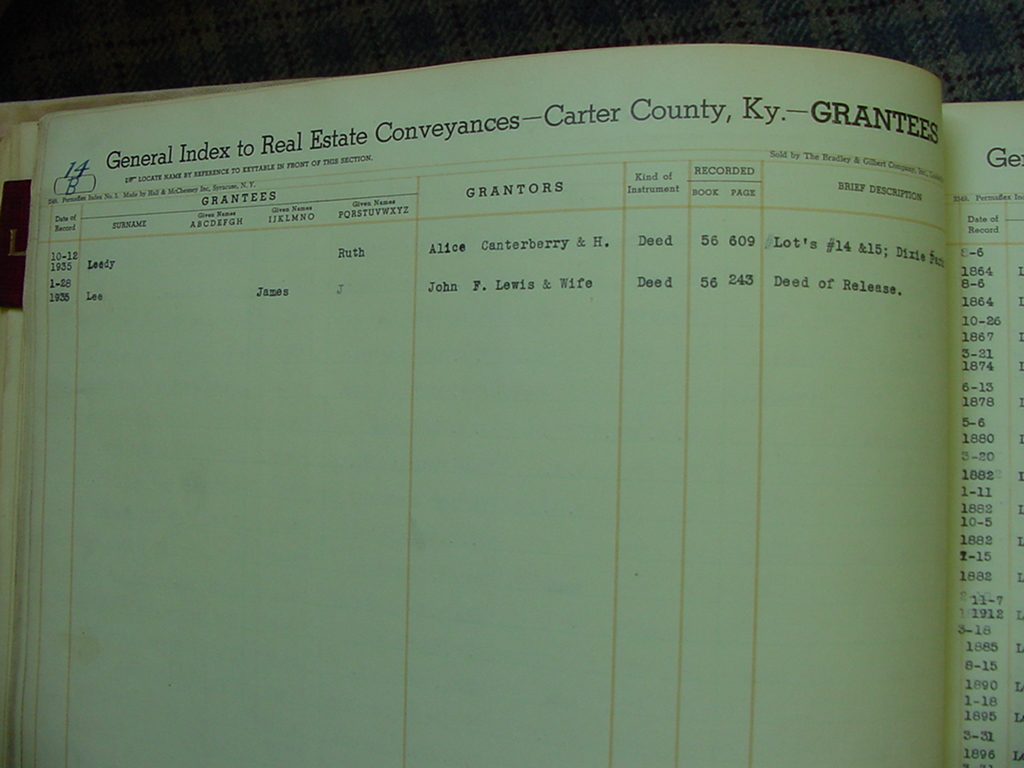 General Index to Real Estate Conveyances—Carter County, Ky.—GRANTEES
14
B
LOCATE NAME BY REFERENCE TO KEYTABLE IN FRONT OF THIS SECTION.
Sold by The Bradley & Gilbert Company, Inc.
Permaflex Index No. 5. Made by Hall & McChesney Inc, Syracuse, N. Y.
Date of Record
GRANTEES
SURNAME
Given Names ABCDEFGH
Given Names IJKLMNO
Given Names PQRSTUVWXYZ
GRANTORS
Kind of Instrument
RECORDED
BOOK PAGE
BRIEF DESCRIPTION
10-12
1935 Leedy Ruth Alice Canterberry & H. Deed 56 609 Lot's #14 &15; Dixie
1-28
1935 Lee James J John F. Lewis & Wife Deed 56 243 Deed of Release.
L
Ge
Permaflex
Date of Record
-6
1864
8-6
1864 L
10-26
1867 L
3-21
1874
6-13
1878 L
5-6
1880 L
3-20
1882 L
1-11
1882 L
10-5
1882 L
-15
1882 L
11-7
1912 L
3-18
1885 L
8-15
1890 L
1-18
1895 L
3-31
1896 L